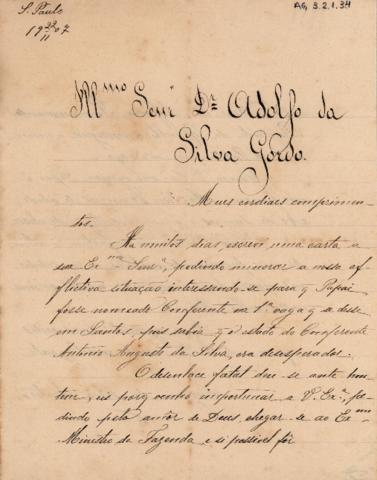 S. Paulo
19 22/11 07
AG, 3.2.1.34
Mmo Senr Dr Adolfo da
Silva Gordo.
Meus cordiaes comprimen-
tos.
Ha muitos dias, escrevi uma carta a
sua Exma Senra, pedindo minorar a nossa af-
flictiva situação interessando-se para q Papai
fosse nomeado Conferente na 1a vaga q a desse
em Santos, pois sabia q o estado do Conferente
Antonio Augusto da Silva, era desesperador.
O desenlace fatal deu-se ante hon-
tem, eis porq venho importunar a V. Exa, pe-
dindo pelo amor de Deus, chegar-se ao Exmo
Ministro da Fazenda, e si possivel fôr